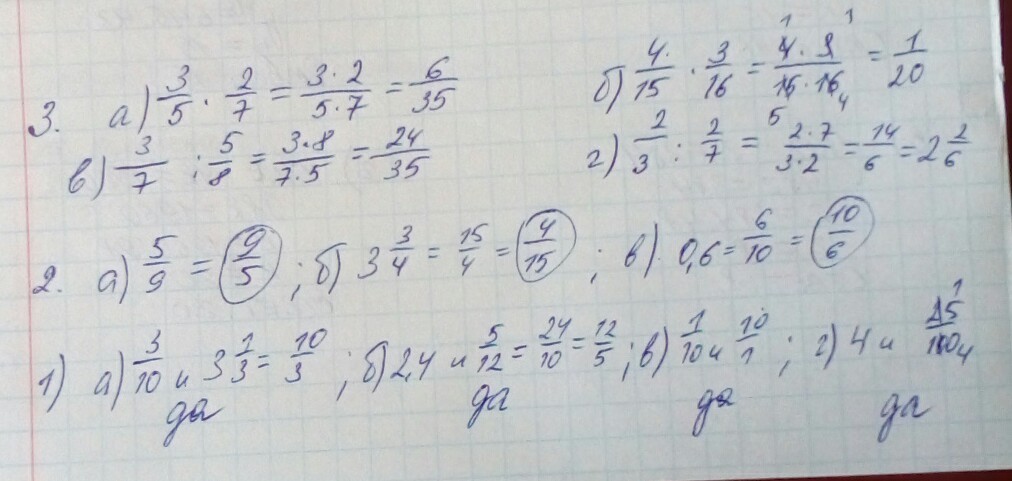 3. а) 3/5 · 2/7 = 3·2/5·7 = 6/35 б) 4/15 · 3/16 = 4·3/15·16 = 1/20
в) 3/7 : 5/8 = 3·8/7·5 = 24/35 г) 2/3 : 2/7 = 2·7/3·2 = 14/6 = 2 2/6
2. а) 5/9 = 9/5 ; б) 3 3/4 = 15/4 = 4/15 ; в) 0,6 = 6/10 = 10/6
1) а) 3/10 и 3 1/3 = 10/3 ; б) 2,4 и 5/12 = 24/10 = 12/5 ; в) 1/10 и 10/1 ; г) 4 и 25/100
да да да да